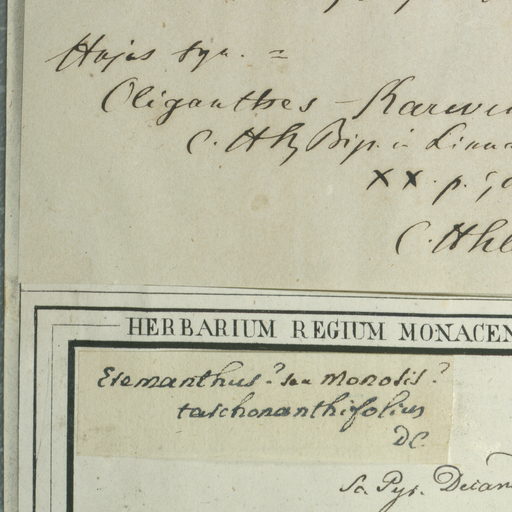 Hujus syn. =
Oliganthes – Karwin
C. H. Bip. in Linna
XX. p.
C. H
HERBARIUM REGIUM MONACEN
Eremanthus? seu Monosis?
tarchonanthifolius
DC.
Sc. Pyr.